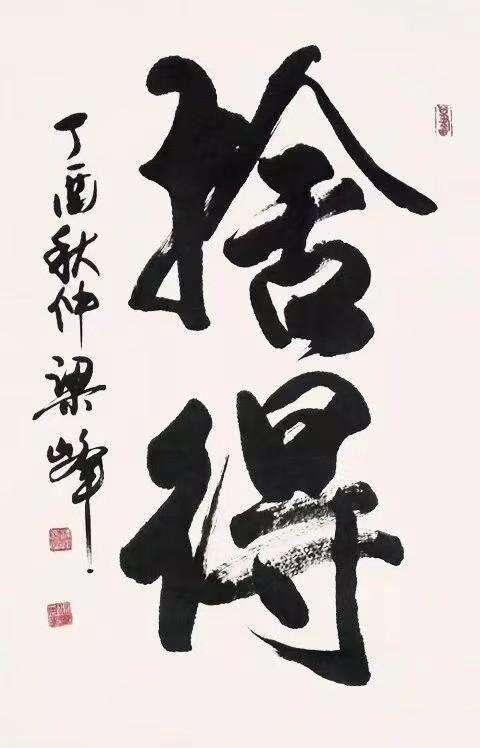 捨得
丁酉秋仲梁峰